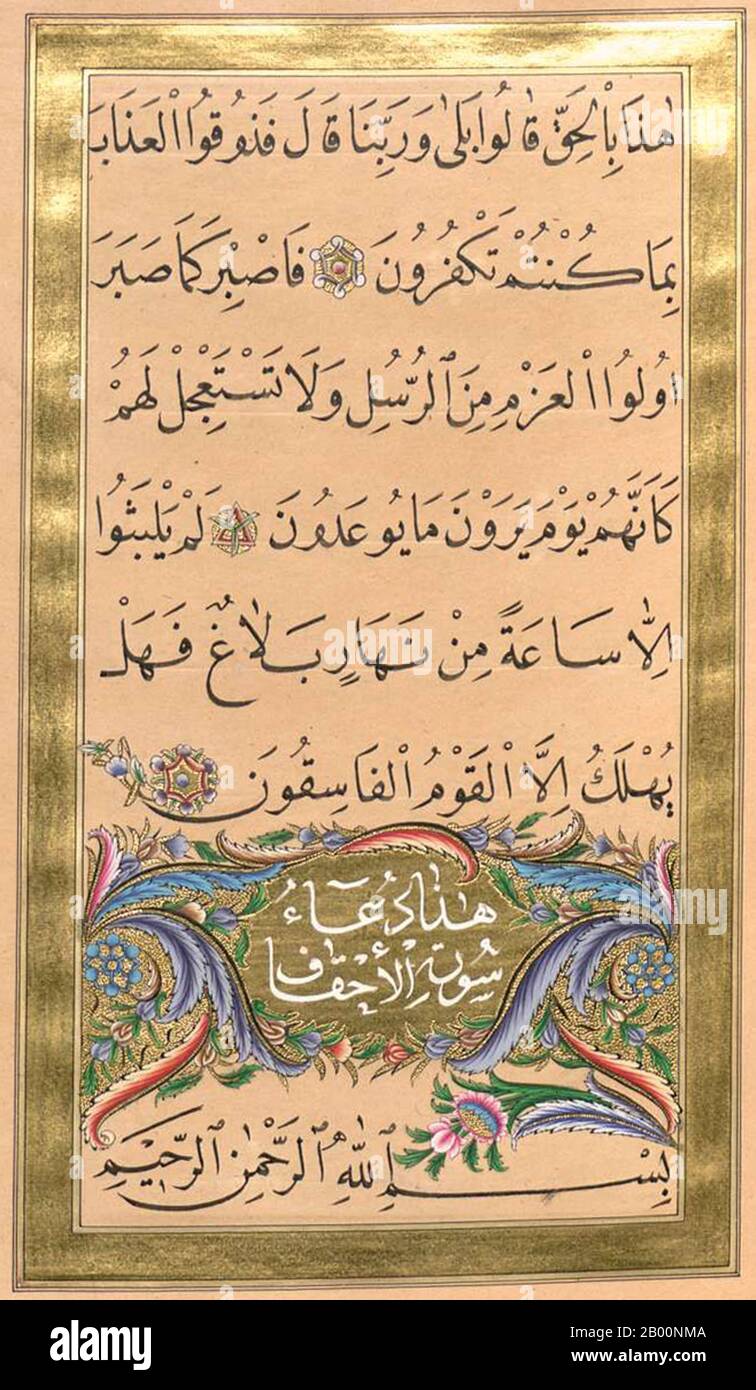 هٰذَا بِالْحَقِّ قَالُوا بَلٰى وَرَبِّنَا قَالَ فَذُوقُوا الْعَذَابَ
بِمَا كُنْتُمْ تَكْفُرُونَ فَاصْبِرْ كَمَا صَبَرَ
اُولُوا الْعَزْمِ مِنَ الرُّسُلِ وَلَا تَسْتَعْجِلْ لَهُمْ
كَاَنَّهُمْ يَوْمَ يَرَوْنَ مَا يُوعَدُونَ لَمْ يَلْبَثُوا
اِلَّا سَاعَةً مِنْ نَهَارٍ بَلَاغٌ فَهَلْ
يُهْلَكُ اِلَّا الْقَوْمُ الْفَاسِقُونَ
هٰذَا دُعَاءُ
سُورَةِ الْأَحْقَافِ
بِسْمِ اللّٰهِ الرَّحْمٰنِ الرَّحِيمِ
alamy
Image ID: 2B00NMA
www.alamy.com